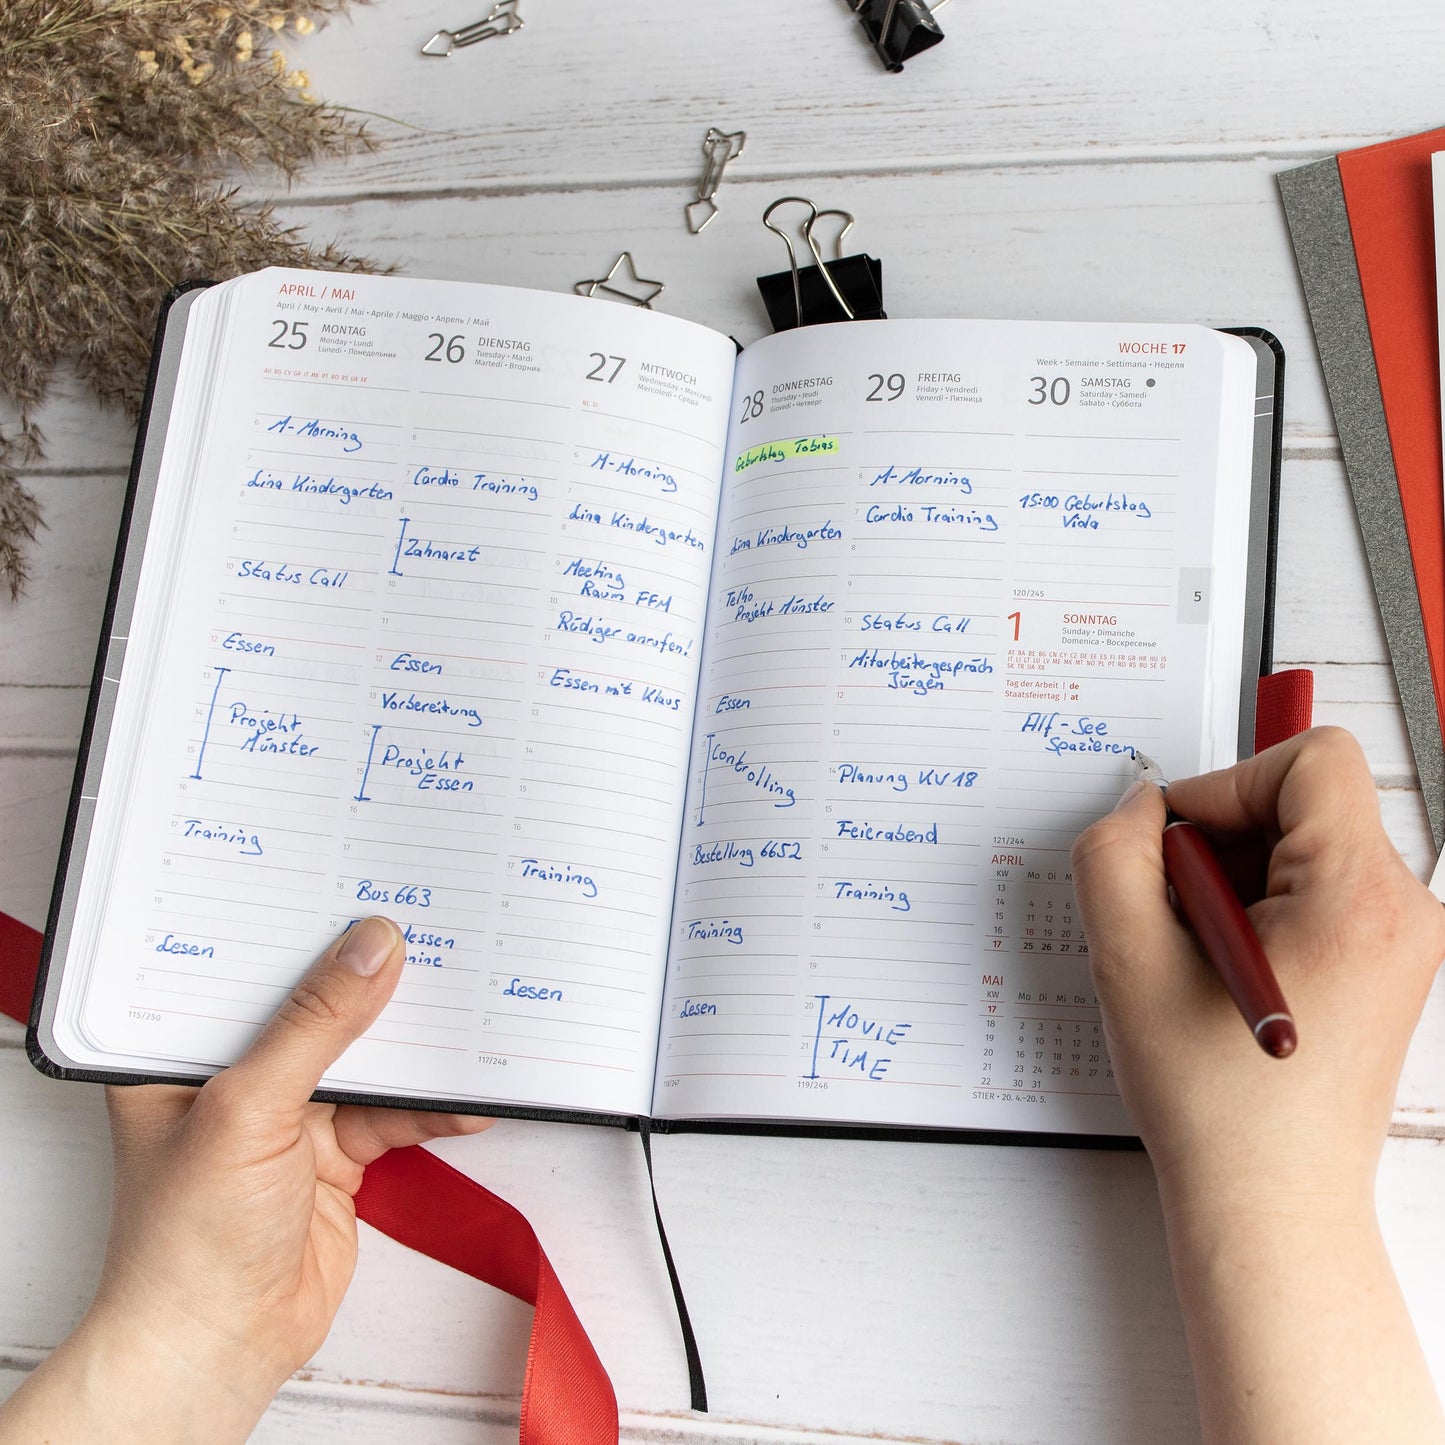 APRIL / MAI
April / May • Avril / Mai • Aprile / Maggio • Апрель / Май
25 MONTAG
Monday • Lundi
Lunedì • Понедельник
AU BG CY GR IT MK PT RO RS UA XK
6 M-Morning
7
Lina Kindergarten
8
9
10 Status Call
11
12 Essen
13
14 Projekt
Münster
15
16
17 Training
18
19
20 Lesen
21
115/250
26 DIENSTAG
Tuesday • Mardi
Martedì • Вторник
6
7 Cardio Training
8
Zahnarzt
10
11
12 Essen
13 Vorbereitung
14 Projekt
Essen
16
17
18 Bus 663
19
27 MITTWOCH
Wednesday • Mercredi
Mercoledì • Среда
NL SI
6 M-Morning
7
Lina Kindergarten
8
9 Meeting
Raum FFM
10
Rüdiger anrufen!
11
12 Essen mit Klaus
13
14
15
16
17 Training
18
19
20 Lesen
21
117/248
WOCHE 17
Week • Semaine • Settimana • Неделя
28 DONNERSTAG
Thursday • Jeudi
Giovedì • Четверг
Geburtstag Tobias
Lina Kindergarten
Telko
Projekt Münster
Essen
Controlling
Bestellung 6652
Training
Lesen
118/247
29 FREITAG
Friday • Vendredi
Venerdì • Пятница
6 M-Morning
7 Cardio Training
8
9
10 Status Call
11 Mitarbeitergespräch
Jürgen
12
13
14 Planung KV 18
15
Feierabend
16
17 Training
18
19
20 MOVIE
21 TIME
119/246
30 SAMSTAG
Saturday • Samedi
Sabato • Суббота
15:00 Geburtstag
Viola
120/245
5
1 SONNTAG
Sunday • Dimanche
Domenica • Воскресенье
AT BA BE BG CN CY CZ DE EE ES FI FR GR HR HU IS
IT LI LT LU LV ME MK MT NO PL PT RO RS RU SE SI
SK TR UA XK
Tag der Arbeit | de
Staatsfeiertag | at
Alf-See
Spazieren
121/244
APRIL
KW Mo Di Mi Do Fr
13
14 4 5 6 7
15 11 12 13
16 18 19 20
17 25 26 27 28
MAI
KW Mo Di Mi Do
17
18 2 3 4 5 6
19 9 10 11 12 13
20 16 17 18 19 20
21 23 24 25 26 27 28
22 30 31
STIER • 20. 4.–20. 5.